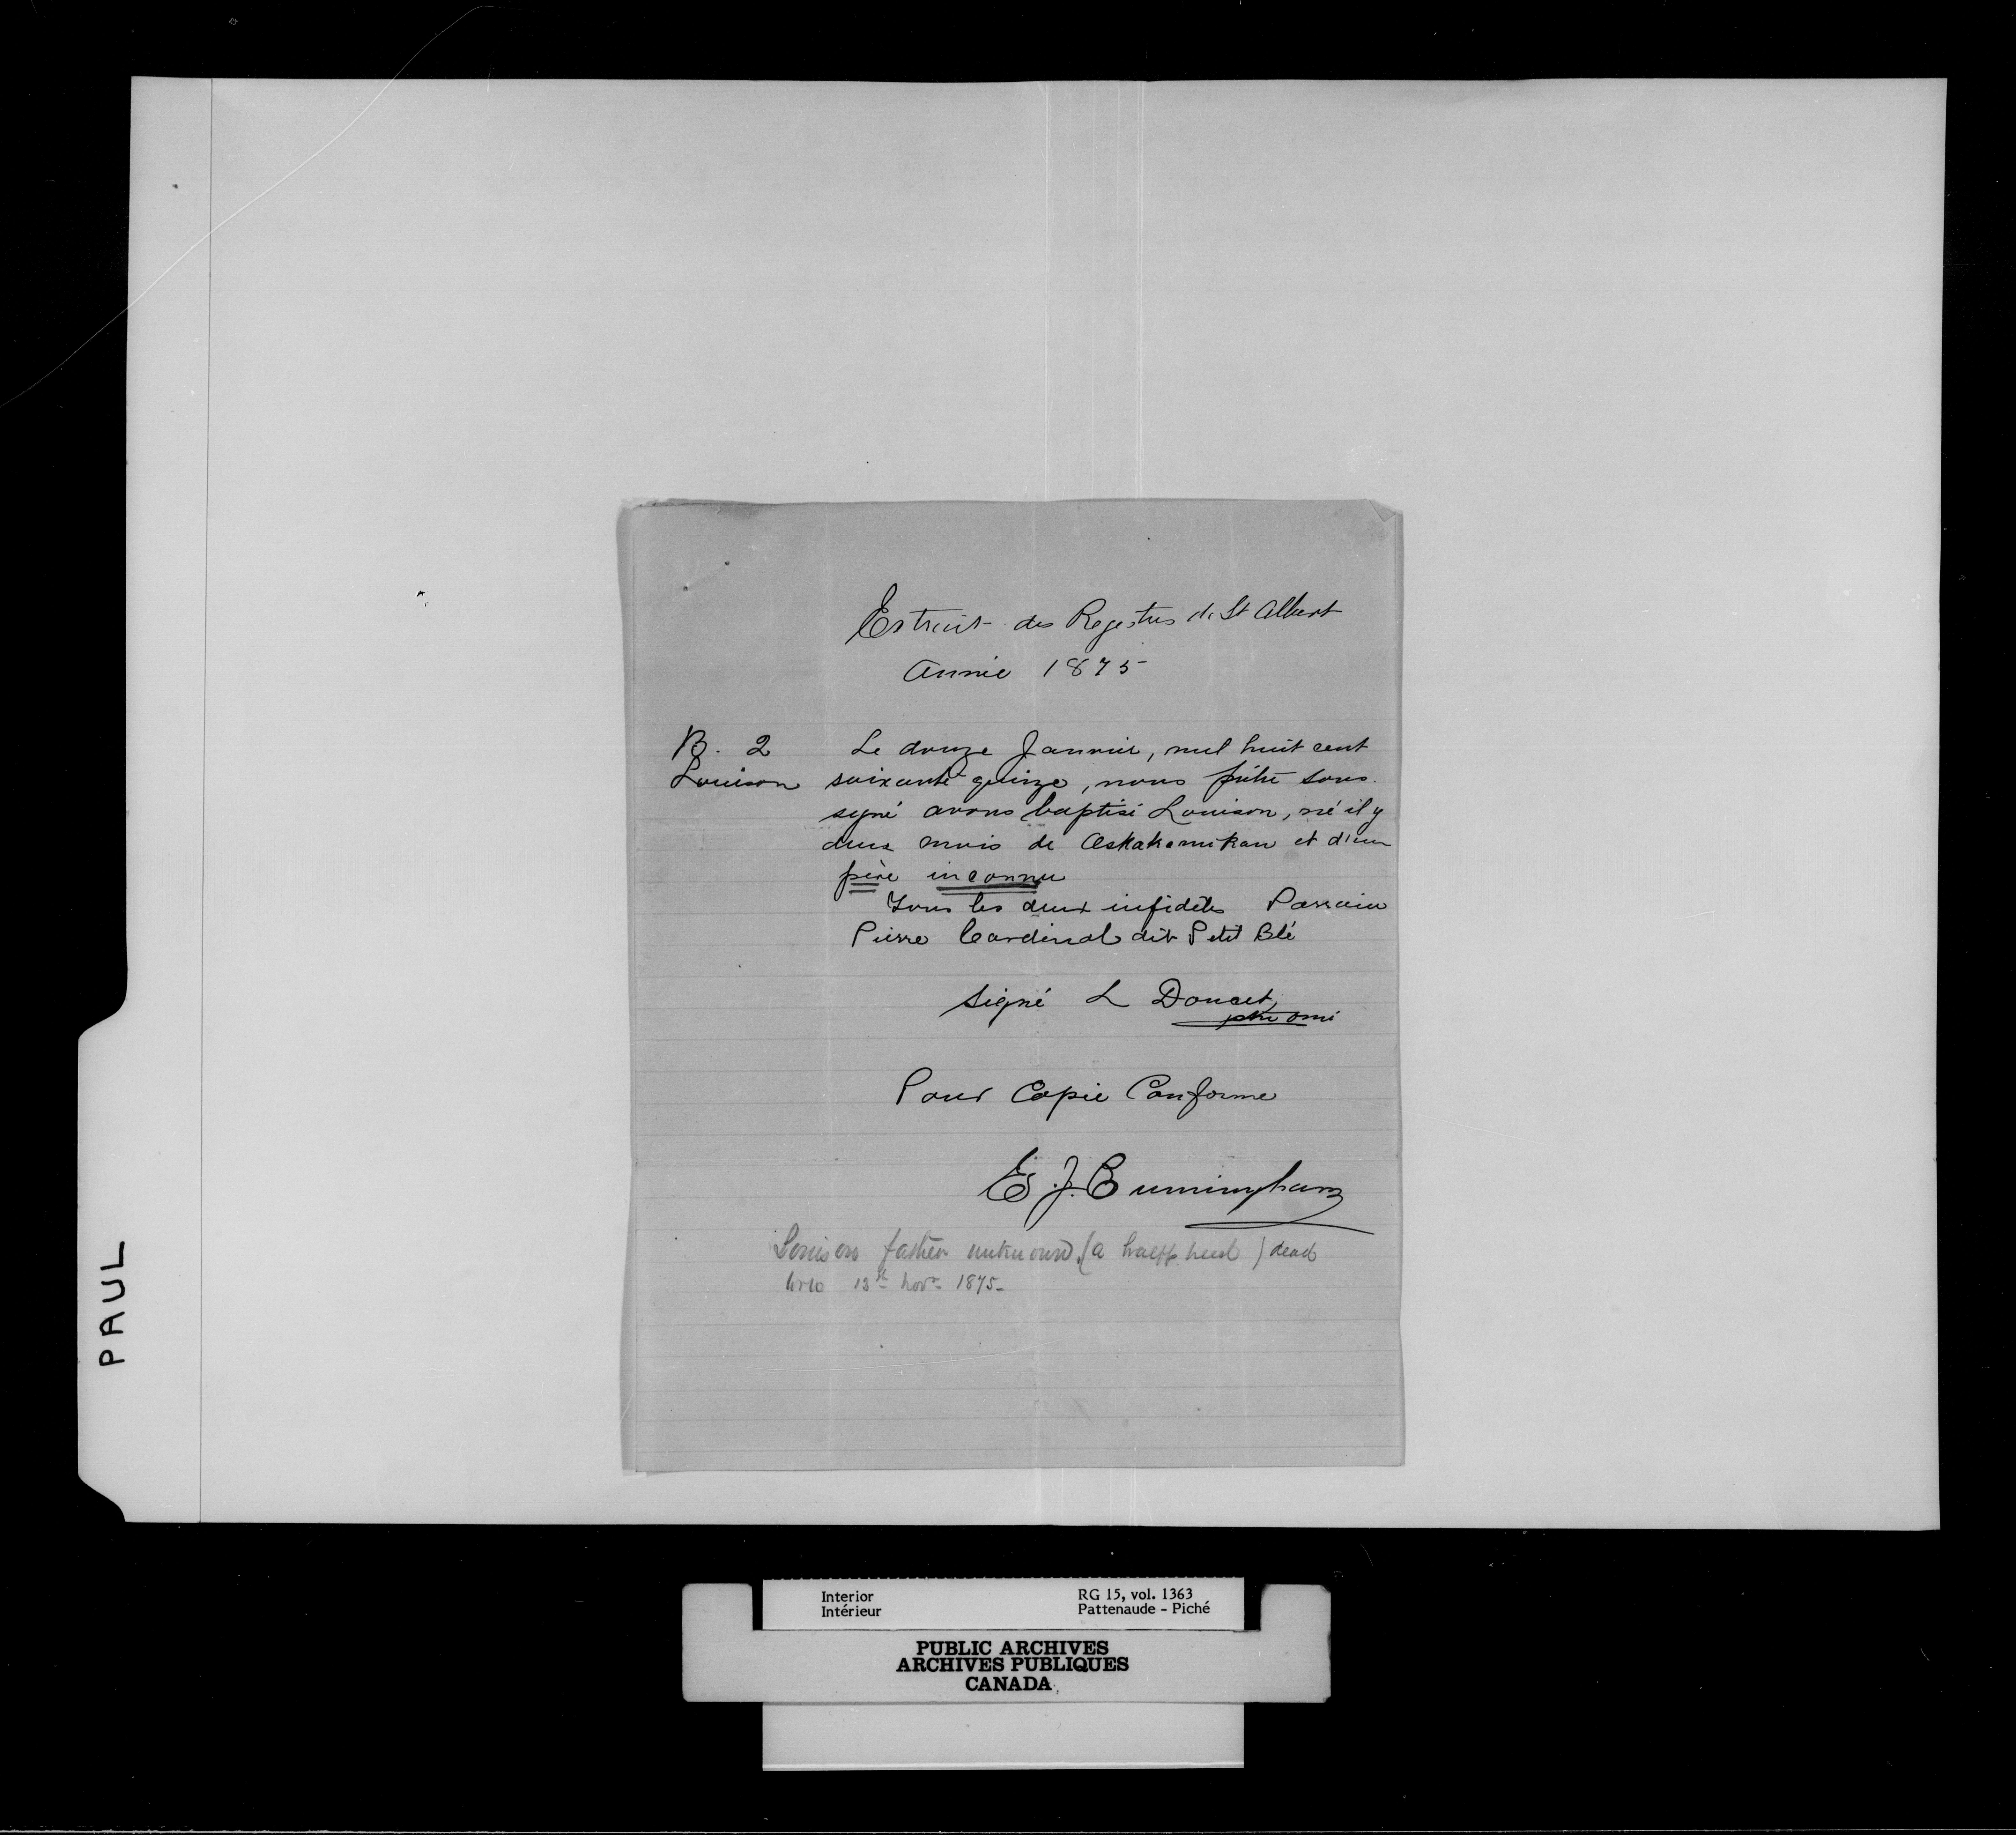 Extrait des Regestres de St Albert
Année 1875
B. 2
Louison
Le douze Janvier, mil huit cent
soixante-quinze, nous prêtre sous
signé avons baptisé Louison, né il y
deux mois de Askakamikan et d'un
père inconnu
Tous les deux infidèles Parrain
Pierre Cardinal dit Petit Blé
Signé L Doucet,
ptre omi
Pour Copie Conforme
E. J. Cunningham
Louison father unknown (a halff breed) dead
13th Novr 1875-
PAUL
Interior
Intérieur
RG 15, vol. 1363
Pattenaude - Piché
PUBLIC ARCHIVES
ARCHIVES PUBLIQUES
CANADA